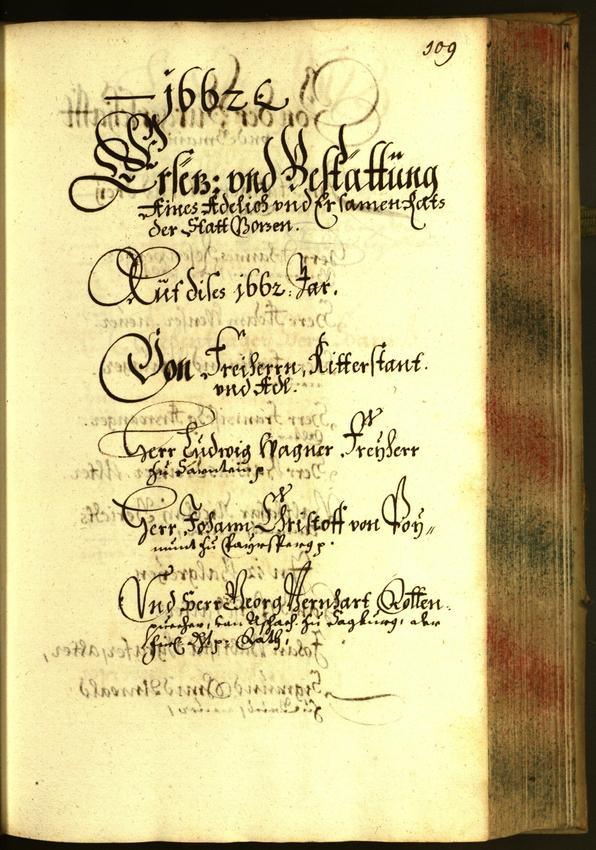 109
1662
Ersez: und Bestättung
Eines Adelich und Ersamen Rats
der Statt Bozen.
Auf dises 1662: Jar.
Von Freiherrn, Ritterstant.
und Adl.
Herr Ludwig Wagner Freyherr
zu Sarntein p
Herr Johann Christoff von Poy„
munt zu Payrsperg p.
Und Herr Georg Bernhart Rotten„
puecher, von zu
Rath,